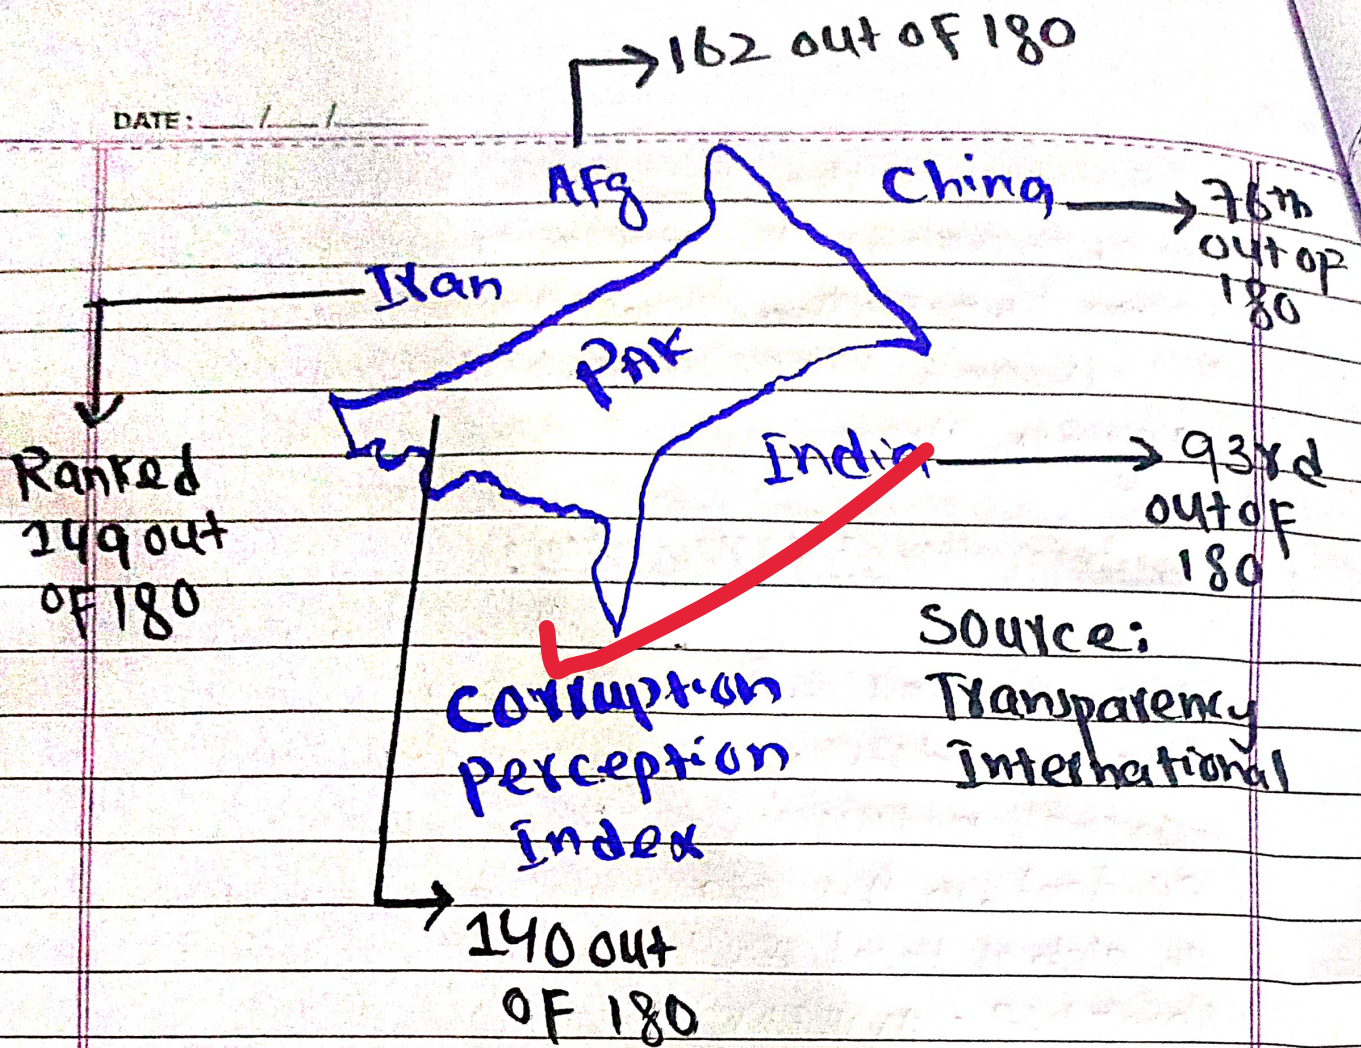 162 out of 180
DATE: __/__/____
Afg
China
76th
out of
180
Iran
PAK
India
93rd
out of
180
Ranked
149 out
of 180
Source:
Transparency
International
Corruption
perception
index
140 out
of 180